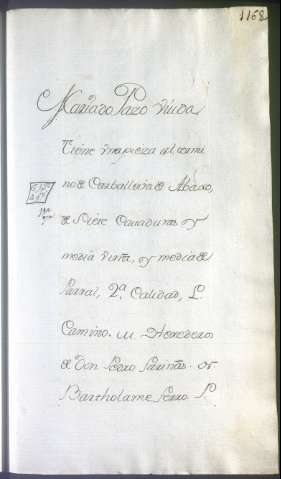 1168
Maria do Pazo Viuda
Tiene Una pieza al termi
no de Carballeira de Abajo,
de Siete Cavaduras y
media Viña, y media de
Parral, 2ª Calidad, L.
Camino. M. Herederos
de Don Pedro Fariñas. 
Bartholame Perro P.